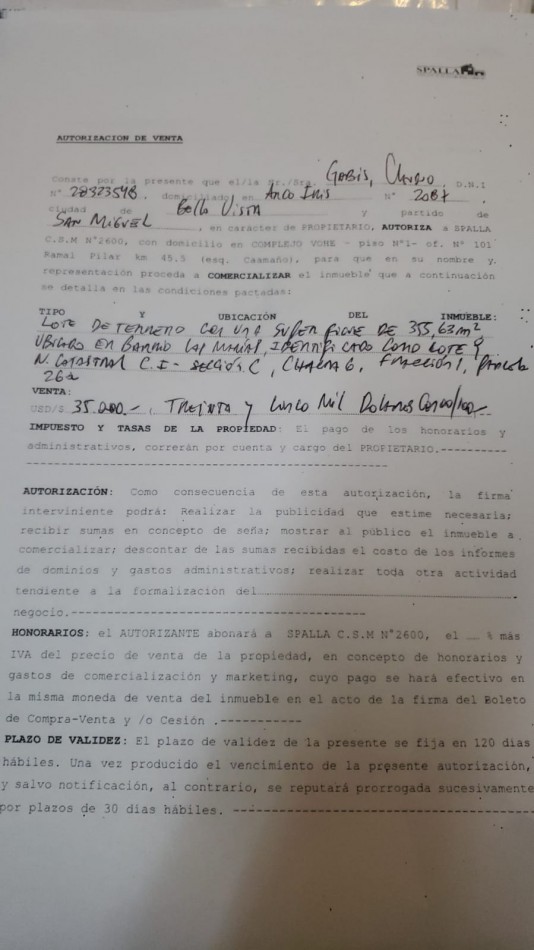 SPALLA
AUTORIZACION DE VENTA
Conste por la presente que el/la Sr./Sra. Gabis, D.N.I
N° 28323548. domiciliado en Arco Iris N° 2087
ciudad de Bella Vista y partido de
San Miguel, en caracter de PROPIETARIO, AUTORIZA a SPALLA
C.S.M N°2600, con domicilio en COMPLEJO VOHE - piso N°1- of. N° 101
Ramal Pilar km 45.5 (esq. Caamaño), para que en su nombre y
representación proceda a COMERCIALIZAR el inmueble que a continuación
se detalla en las condiciones pactadas:
TIPO Y UBICACIÓN DEL INMUEBLE:
LOTE DE TERRENO CON UNA SUPERFICIE DE 355,63m²
UBICADO EN BARRIO LAS MARIAS, IDENTIFICADO COMO LOTE 9
N. CATASTRAL C.I- SECCIÓN C, CHACRA 6, FRACCION 1, PARCELA
26a
VENTA:
USD/$ 35.000.-, TREINTA y CINCO MIL DOLARES
IMPUESTO Y TASAS DE LA PROPIEDAD: El pago de los honorarios y
administrativos, correrán por cuenta y cargo del PROPIETARIO.----------
----------------------------------------------------
AUTORIZACIÓN: Como consecuencia de esta autorización, la firma
interviniente podrá: Realizar la publicidad que estime necesaria;
recibir sumas en concepto de seña; mostrar al público el inmueble a
comercializar; descontar de las sumas recibidas el costo de los informes
de dominios y gastos administrativos; realizar toda otra actividad
tendiente a la formalización del
negocio.---------------------------------------
HONORARIOS: el AUTORIZANTE abonará a SPALLA C.S.M N°2600, el __ % más
IVA del precio de venta de la propiedad, en concepto de honorarios y
gastos de comercialización y marketing, cuyo pago se hará efectivo en
la misma moneda de venta del inmueble en el acto de la firma del Boleto
de Compra-Venta y /o Cesión .-----------
PLAZO DE VALIDEZ: El plazo de validez de la presente se fija en 120 dias
hábiles. Una vez producido el vencimiento de la presente autorización,
y salvo notificación, al contrario, se reputará prorrogada sucesivamente
por plazos de 30 dias hábiles. ---------------------------------------